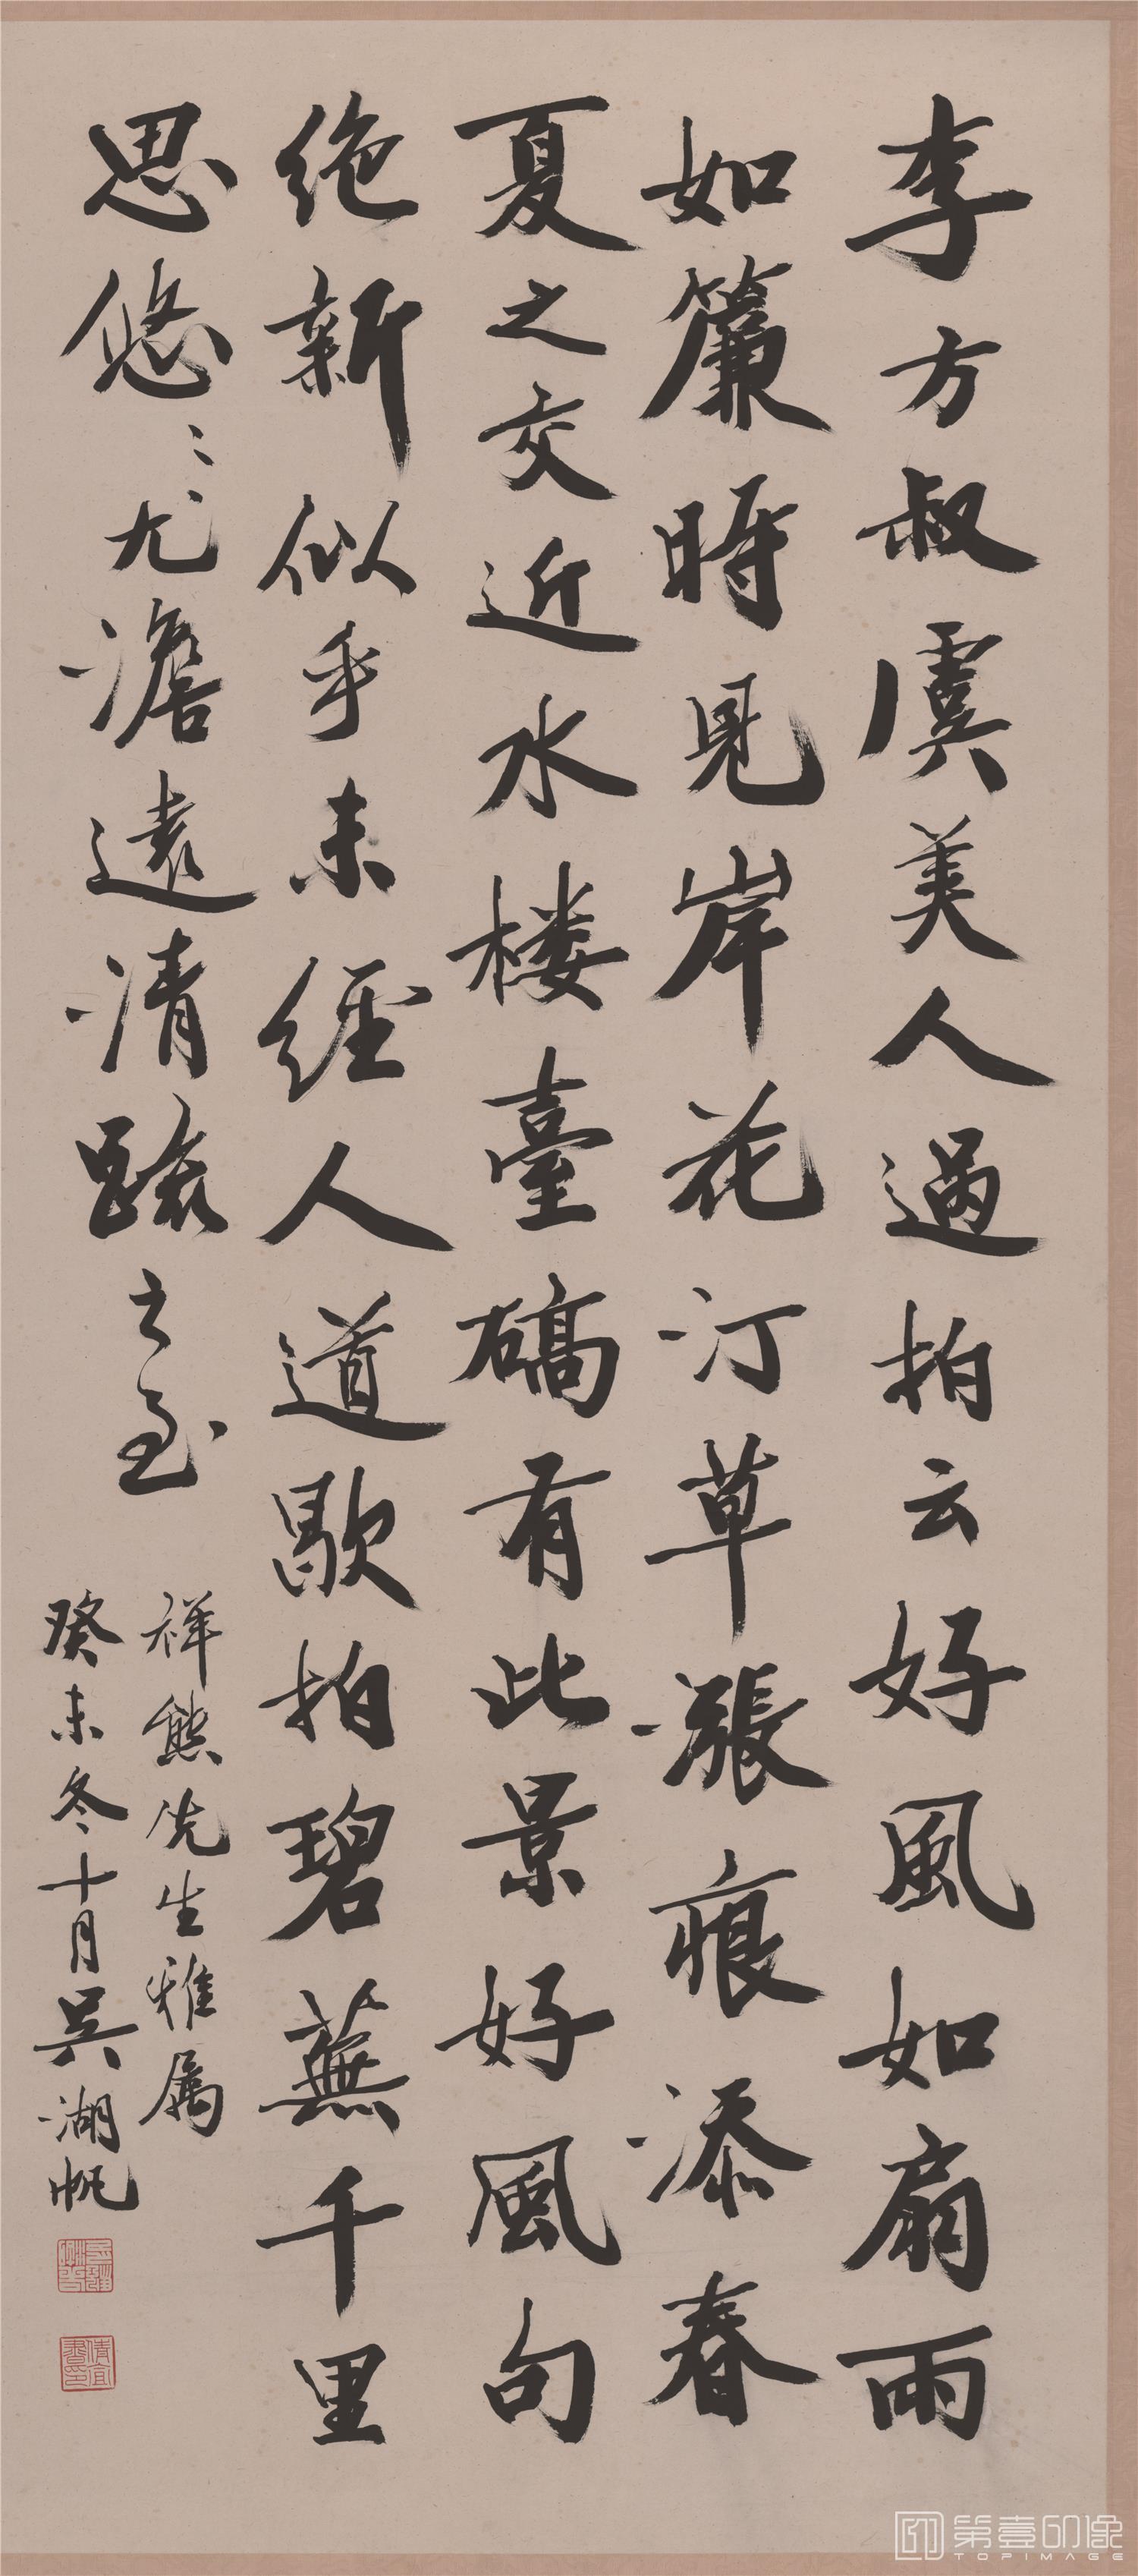 李方叔虞美人過拍云好風如扇雨
如簾時見岸花汀草漲痕添春
夏之交近水楼臺礄有此景好風句
绝新似乎未經人道歇拍碧蕪千里
思悠〻尤澹遠清踈之至
祥熊先生雅属
癸未冬十月吴湖帆
倩宜書印
第壹印像
TOPIMAGE